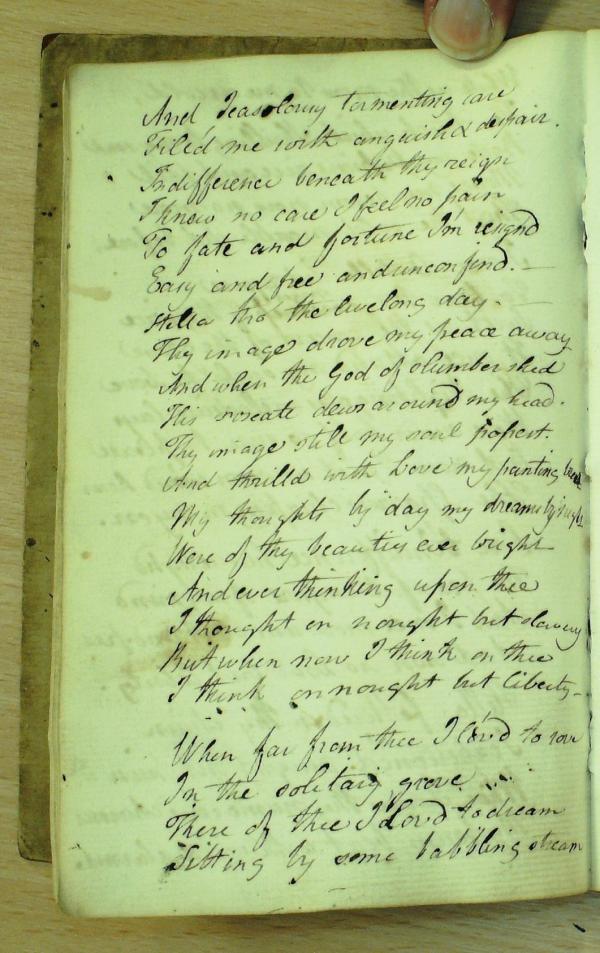 And Jeasolousy tormenting care
Filed me with anguish & despair.
Indifference beneath thy reign
I know no care I feel no pain
To fate and fortune I'm resignd
Easy and free and unconfind. —
Stella tho' the livelong day. —
Thy image drove my peace away
And when the God of slumber shed
His roseate dews around my head.
Thy image still my soul possest.
And thrilld with Love my panting
My thoughts by day my dreams by night
Were of thy beauties ever bright
And ever thinking upon thee
I thought on nought but slavery
But when now I think on thee
I think on nought but Liberty —
When far from thee I lov'd to rove
In the solitary grove
There of thee I Lovd to dream
Sitting by some babbling stream